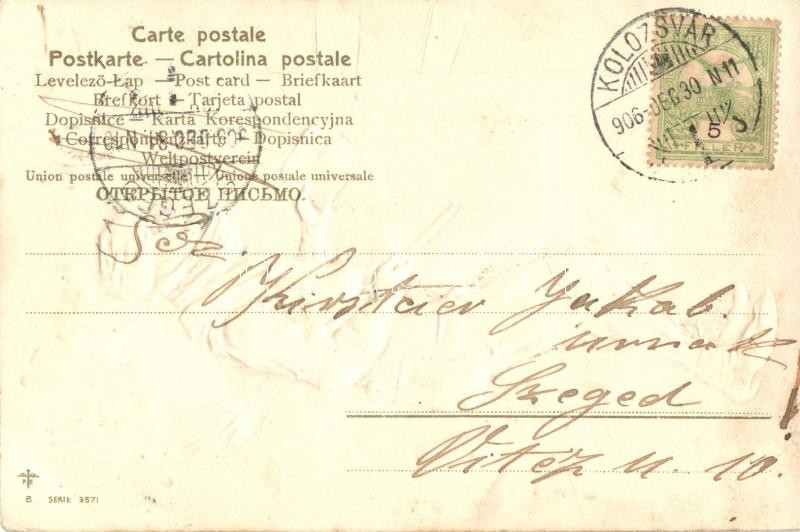 Carte postale
Postkarte — Cartolina postale
Levelező-Lap — Post card — Briefkaart
Brefkort — Tarjeta postal
Dopisnice — Karta Korespondencyjna
Correspondenzkarte — Dopisnica
Weltpostverein
Union postale universelle — Unione postale universale
ОТКРЫТОЕ ПИСЬМО.
KOLOZSVÁR
906-DEC.30 N 11
5
FILLÉR
SZEGED
Kirstaier Jakab
urnak
Szeged
Vitéz u. 10.
P F
B SERIE 3571